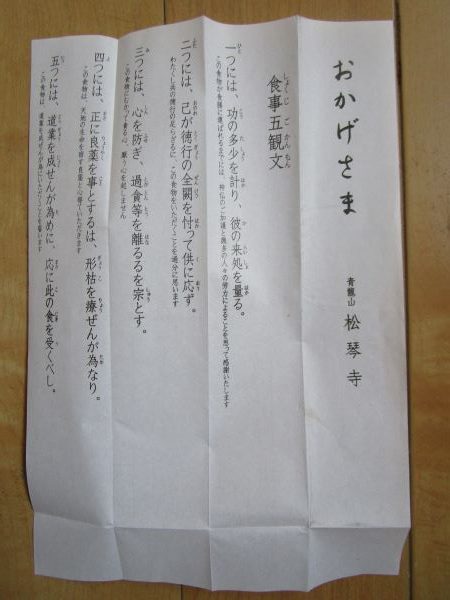 おかげさま
青龍山 松琴寺
食事五観文
一つには、功の多少を計り、彼の来処を量る。
この食物が食膳に運ばれるまでには、神仏のご加護と幾多の人々の労力によることを思って感謝いたします
二つには、己が徳行の全闕を忖って供に応ず。
わたくし共の徳行の足らざるに、この食物をいただくことを過分に思います
三つには、心を防ぎ、過貪等を離るるを宗とす。
この食物にむかって貪る心、厭う心を起しません
四つには、正に良薬を事とするは、形枯を療ぜんが為なり。
この食物は、天地の生命を宿す良薬と心得ていただきます
五つには、道業を成ぜんが為めに、応に此の食を受くべし。
この食物は、道業を成ぜんが為にいただくことを誓います